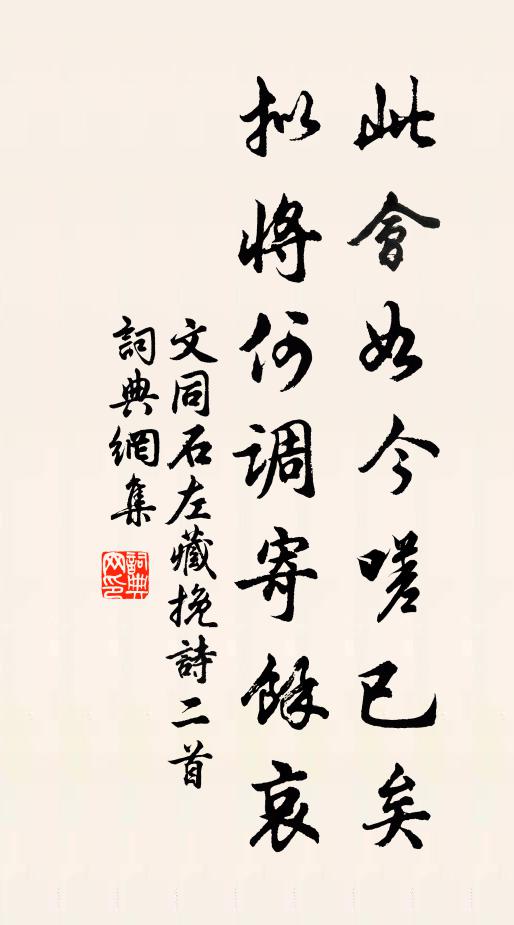 此會如今嗟已矣
拟將何調寄餘哀
文同石左藏挽詩二首
詞典網集
詞典网印